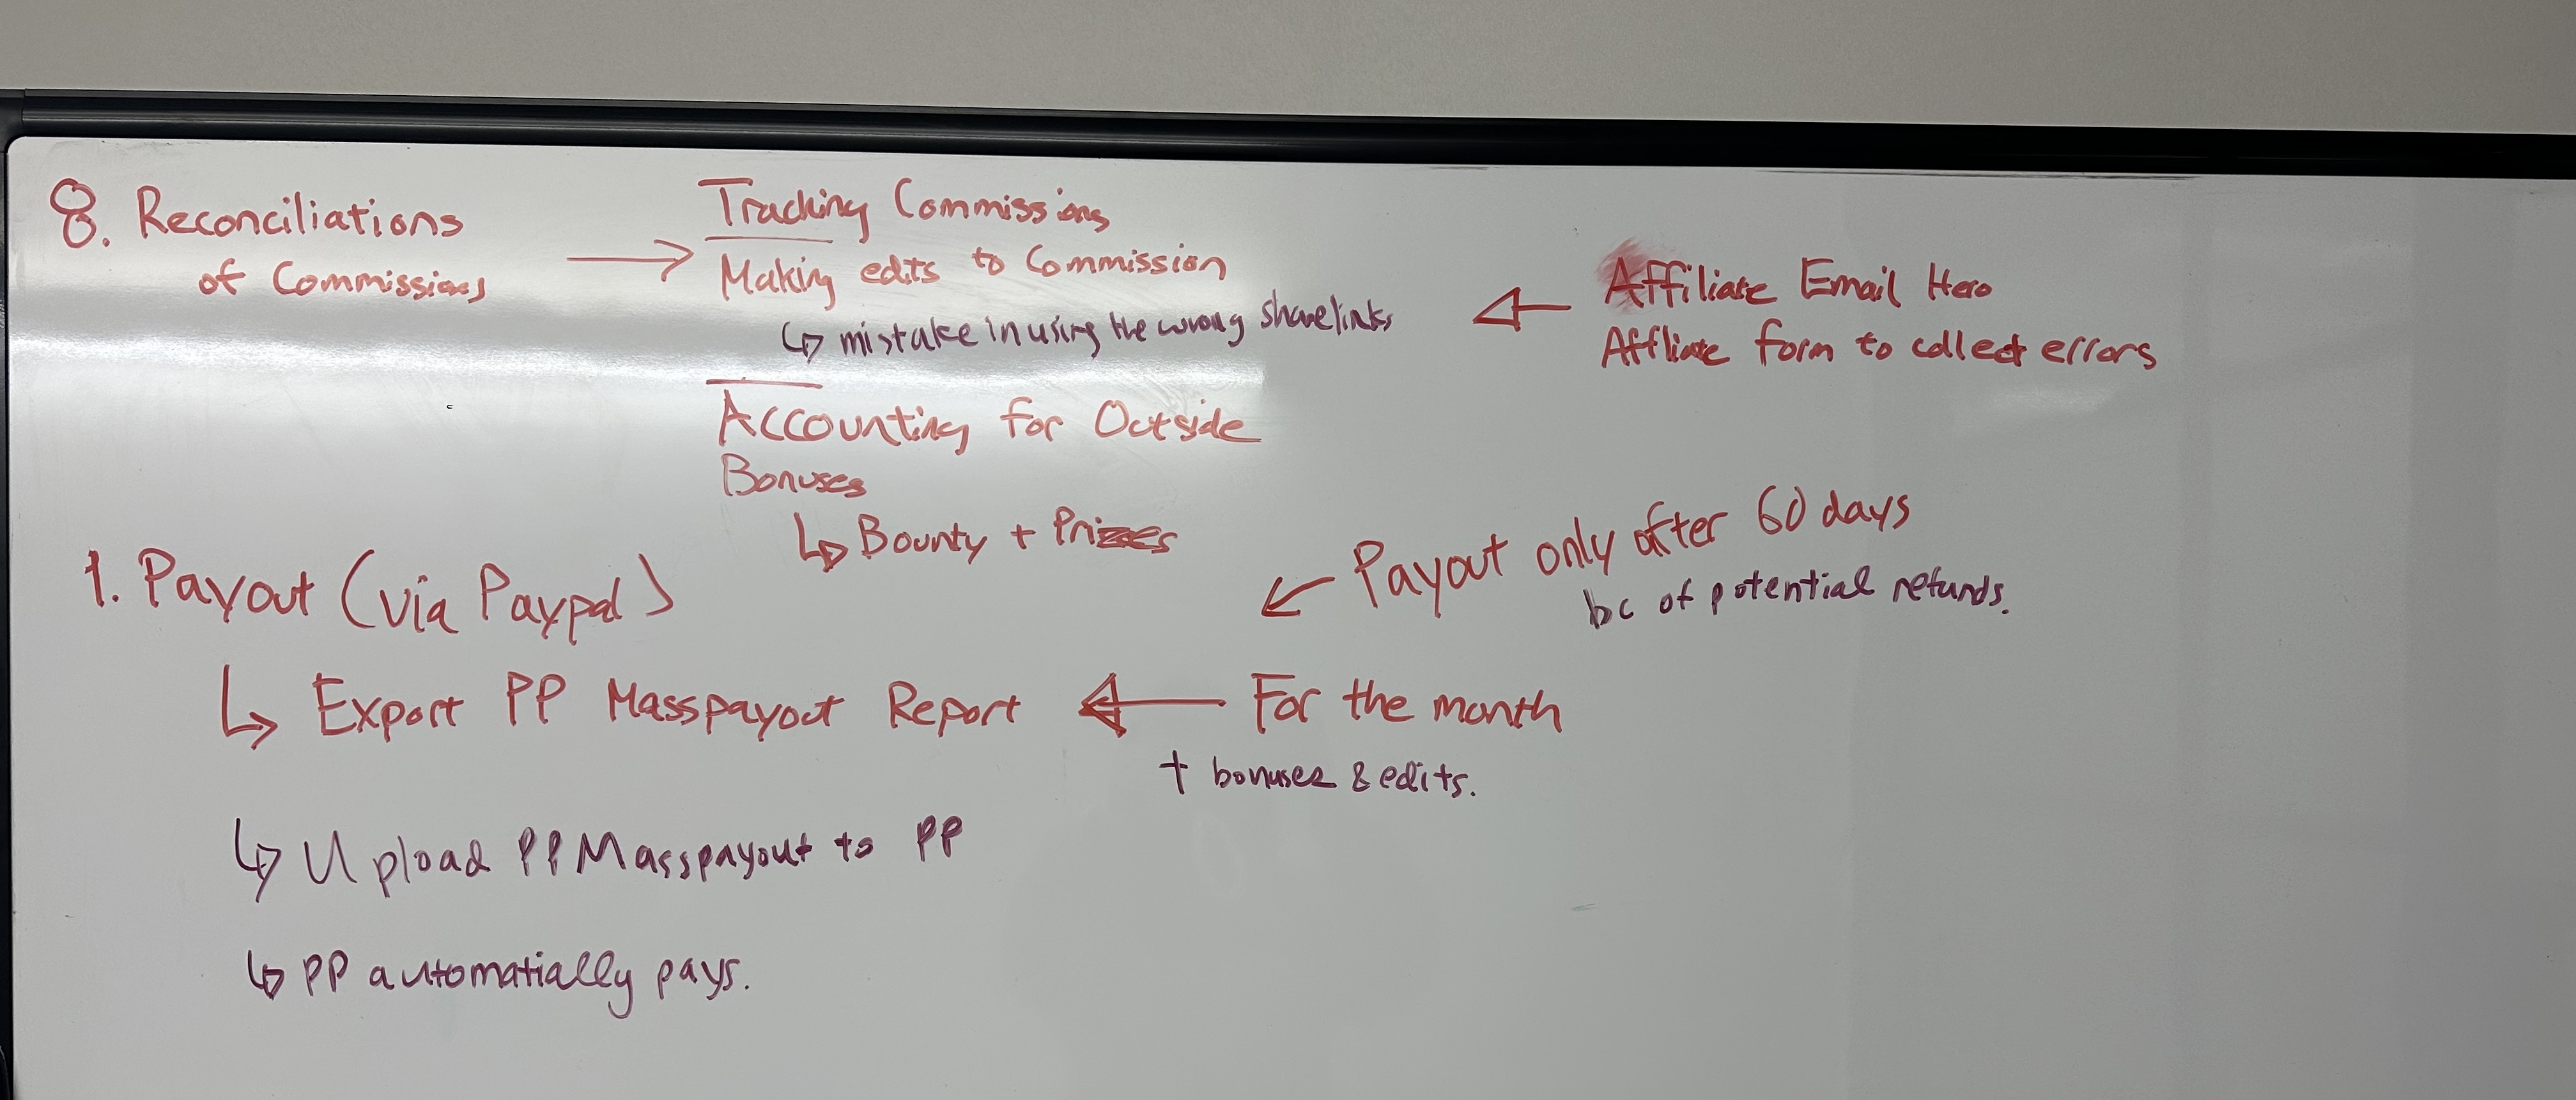 8. Reconciliations
of Commissions
→ Tracking Commissions
Making edits to Commission
↳ mistake in using the wrong sharelinks
← Affiliate Email Hero
Affliate form to collect errors
Accounting for Outside
Bonuses
↳ Bounty + Prizes
1. Payout (via Paypal)
↙ Payout only after 60 days
bc of potential refunds.
↳ Export PP Masspayout Report ← For the month
+ bonuses & edits.
↳ Upload PP Masspayout to PP
↳ PP automatially pays.